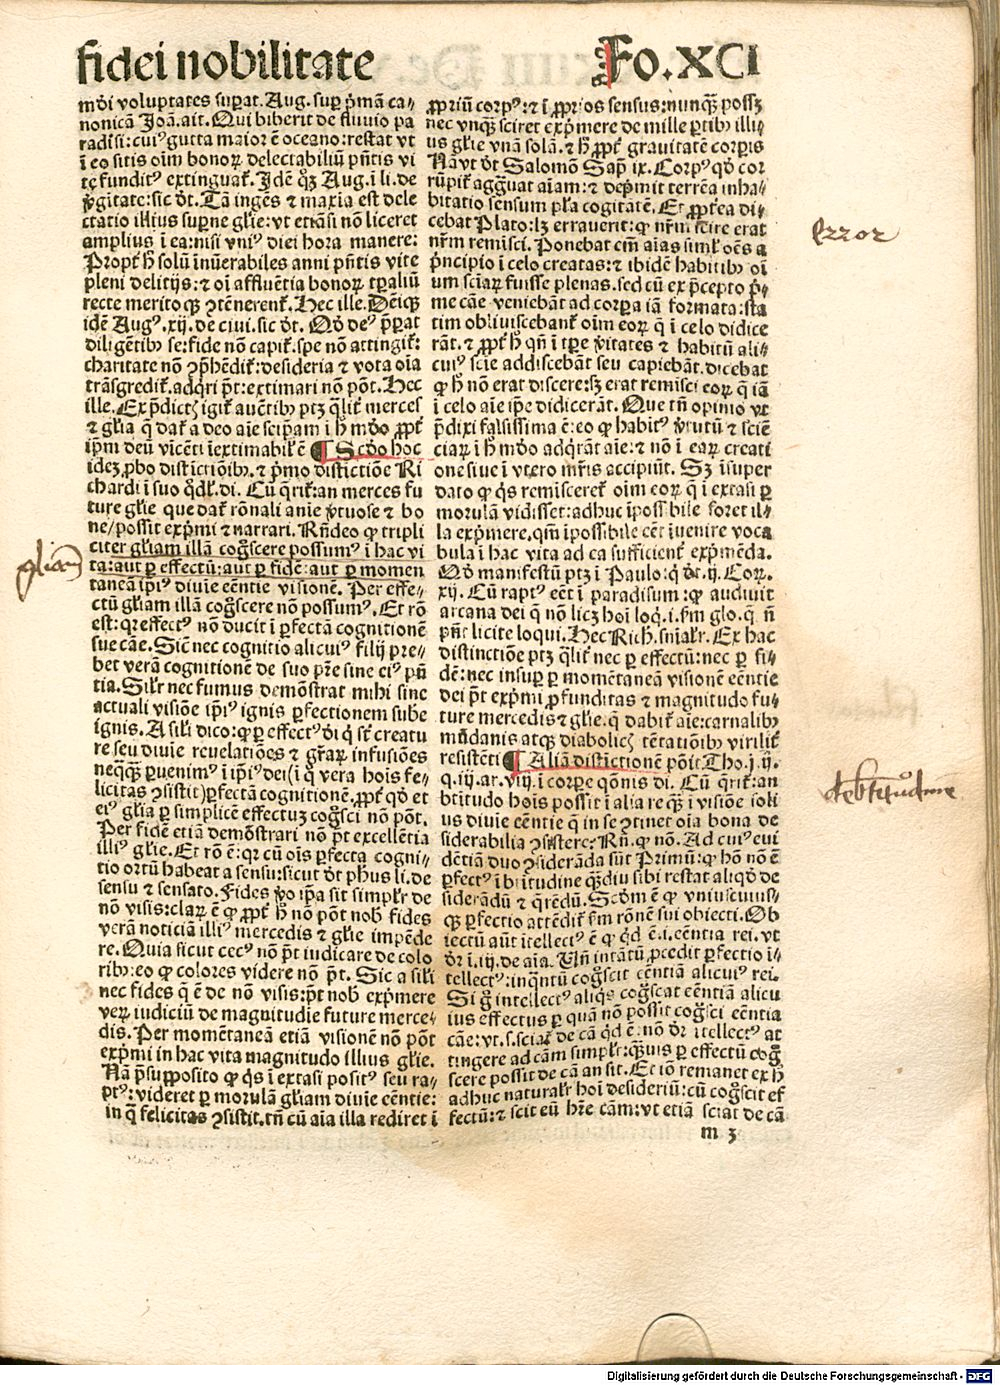 fidei nobilitate
Fo.XCI
mōi voluptates suꝑat. Aug. suꝑ p̄mā ca⸗
nonicā Joā. ait. Qui biberit de fluuio pa
radisi: cuiꝰ gutta maior ē oceano: restat vt
ī eo sitis oīm bonoꝝ delectabiliū pn̄tis vi
te funditꝰ extinguat̄. Idē qꝫ Aug. ī li. de
v̄gitate: sic dt̄. Tā ingēs ⁊ maxīa est dele
ctatio illius supne gl̄ie: vt etiāsi nō liceret
amplius ī ea: nisi vniꝰ diei hora manere:
Propt̄ h̄ solū īnūerabiles anni pn̄tis vite
pleni delitijs: ⁊ oī affluētia bonoꝝ tꝑaliū
recte meritoqꝫ ꝯtēnerent̄. Hec ille. Dēiqꝫ
idē Augꝰ. xij. de ciui. sic dt̄. Qd̄ deꝰ p̄parat
diligētibꝰ se: fide nō capit̄. spe nō attingit̄:
charitate nō ꝯp̄hēdit̄: desideria ⁊ vota oīa
trāsgredit̄. adqri p̄t: extimari nō pōt. Hec
ille. Ex p̄dictꝭ igit̄ auētibꝰ ptꝫ ql̄it̄ merces
⁊ gl̄ia q̄ dat̄ a deo aīe seip̄am ī h̄ mōo ꝓpt̄
ip̄m deū vīcēti īextimabil̄ ē ¶ Scd̄o hoc
ideꝫ ꝓbo distīctiōibꝰ. ⁊ p̄mo distictiōe Ri
chardi ī suo qd̄l. di. Cū q̄rit̄: an merces fu
ture gl̄ie que dat̄ rōnali anīe v̄tuose ⁊ bo
ne/possit exp̄mi ⁊ narrari. Rn̄deo ꝙ tripli
citer gl̄iam illā cogn̄scere possumꝰ ī hac vi
ta: aut ꝑ effectū: aut ꝑ fidē: aut ꝑ momen
taneā ip̄iꝰ diuīe eēntie visionē. Per effe⸗
ctū gl̄iam illā cogn̄scere nō possumꝰ. Et rō
est: qꝛ effectꝰ nō ducit ī ꝑfectā cognitionē
sue cāe. Sic̄ nec cognitio alicuiꝰ filij pre⸗
bet verā cognitionē de suo pr̄e sine eiꝰ pn̄
tia. Sil̄r nec fumus demōstrat mihi sine
actuali visiōe ip̄iꝰ ignis ꝑfectionem sube
ignis. A sil̄i dico: ꝙ ꝑ effectꝰ di q̄ st̄ creatu
re seu diuīe reuelatiōes ⁊ gr̄aꝝ infusiōes
neqꝫqꝫ ꝑuenimꝰ ī ip̄iꝰ dei (ī q̄ vera hoīs fe⸗
licitas ꝯsistit) ꝑfectā cognitionē. ꝓpt̄ qd̄ et
eiꝰ gl̄ia ꝑ simplicē effectuꝫ cogn̄sci nō pōt.
Per fidē etiā demōstrari nō p̄t excellētia
illiꝰ gl̄ie. Et rō ē: qꝛ cū oīs ꝑfecta cogni⸗
tio ortū habeat a sensu: sicut dt̄ ph̄us li. de
sensu ⁊ sensato. Fides v̄o ip̄a sit simpl̄r de
nō visis: claꝝ ē ꝙ ꝓpt̄ h̄ nō pōt nob̄ fides
verā noticiā illiꝰ mercedis ⁊ gl̄ie impēde
re. Quia sicut cecꝰ nō p̄t iudicare de colo
ribꝰ: eo ꝙ colores videre nō p̄t. Sic a sil̄i
nec fides q̄ ē de nō visis: p̄t nob̄ exp̄mere
veꝝ iudiciū de magnitudīe future merce⸗
dis. Per momētaneā etiā visionē nō pōt
exp̄mi in hac vita magnitudo illius gl̄ie.
Nā p̄supposito ꝙ q̄s ī extasi positꝰ seu ra⸗
ptꝰ: videret ꝑ morulā gl̄iam diuīe eēntie:
in q̄ felicitas ꝯsistit. tn̄ cū aīa illa rediret ī
ꝓpriū corpꝰ: ⁊ ī ꝓprios sensus: nunqꝫ possꝫ
nec vnqꝫ sciret exp̄mere de mille ꝑtibꝰ illi⸗
us gl̄ie vnā solā. ⁊ h̄ ꝓpt̄ gravitatē corꝑis
Nā vt dt̄ Salomō Sap̄ ix. Corpꝰ qd̄ cor
rūpit̄ aggrauat aīam: ⁊ dep̄mit terrēa inha⸗
bitatio sensum pl̄a cogitatē. Et ꝓpt̄ea di⸗
cebat Plato: lꝫ errauerit: ꝙ nr̄m scire erat
nr̄m remīsci. Ponebat em̄ aīas siml̄ oēs a
p̄ncipio ī celo creatas: ⁊ ibidē habitibꝰ oī
um sciaꝝ fuisse plenas. sed cū ex p̄cepto p̄⸗
me cāe veniebāt ad corꝑa iā formata: sta
tim obliuiscebant̄ oīm eoꝝ q̄ ī celo didice
rāt. ⁊ ꝓpt̄ h̄ qn̄ ī tꝑe v̄itates ⁊ habitū ali⸗
cuiꝰ scīe addiscebāt seu capiebāt. dicebat
ꝙ h̄ nō erat discere: sꝫ erat remīsci eoꝝ q̄ iā
ī celo aīe ip̄e didicerāt. Que tn̄ opinio vt
p̄dixi falsissima ē: eo ꝙ habitꝰ v̄tutū ⁊ sciē
ciaꝝ ī h̄ mōdo adq̄rāt aīe: ⁊ nō ī eaꝝ creati
one siue ī vtero mr̄is accipiūt. Sꝫ īsuper
dato ꝙ q̄s remīsceret̄ oīm eoꝝ q̄ ī extasi ꝑ
morulā vidisset: adhuc īpossibile foret il⸗
la exp̄mere. qm̄ īpossibile eēt īuenire voca
bula ī hac vita ad ea sufficient̄ exp̄mēda.
Qd̄ manifestū ptꝫ ī Paulo: q̄ dt̄. ij. Coꝝ.
xij. Cū raptꝰ eēt ī paradisum: ꝙ audiuit
arcana dei q̄ nō licꝫ hoī loq̄. i. fm̄ glo. q̄ n̄
pn̄t licite loqui. Hec Rich. sn̄ialr̄. Ex hac
distinctiōe ptꝫ ql̄it̄ nec ꝑ effectū: nec ꝑ fi⸗
dē: nec insuꝑ ꝑ momētaneā visionē eēntie
dei p̄t exp̄mi ꝓfunditas ⁊ magnitudo fu⸗
ture mercedis ⁊ gl̄ie. q̄ dabit̄ aīe: carnalibꝰ
mūdanis atqꝫ diabolicꝭ tētatiōibꝰ virilit̄
resistēti ¶ Aliā distictionē pōit Tho. j. ij.
q. iij. ar. viij. ī corꝑe qōnis di. Cū q̄rit̄: an
btītudo hoīs possit ī alia re qꝫ ī visiōe soli
us diuīe eēntie q̄ in se ꝯtinet oīa bona de
siderabilia ꝯsistere: Rn̄. ꝙ nō. Ad cuiꝰ eui
dētiā duo ꝯsiderāda sūt Primū: ꝙ hō nō ē
ꝑfectꝰ ī btītudine qꝫdiu sibi restat aliqd̄ de
siderādū ⁊ q̄rēdū. Scd̄m ē ꝙ vniuscuius⸗
qꝫ ꝑfectio attēdit̄ fm̄ rōnē sui obiecti. Ob
iectū aūt ītellectꝰ ē ꝙ qd̄ ē. i. eēntia rei. vt
dr̄ ī. iij. de aīa. Un̄ intātū ꝓcedit ꝑfectio ī⸗
tellectꝰ: inqn̄tū cogn̄scit eēntiā alicuiꝰ rei.
Si g̊ intellectꝰ aliqs cogn̄scat eēntiā alicu
ius effectus ꝑ quā nō possit cogn̄sci eēntia
cāe: vt. s. sciat̄ de cā qd̄ ē: nō dr̄ ītellectꝰ at
tingere ad cām simpl̄r: qꝫuis ꝑ effectū cogn̄
scere possit de cā an sit. Et iō remanet ex h̄
adhuc natural̄r hoī desideriū: cū cogn̄scit ef
fectū: ⁊ scit eū h̄re cām: vt etiā sciat de cā
m 3
error
gl̄iam
de btītudine
Digitalisierung gefördert durch die Deutsche Forschungsgemeinschaft - DFG